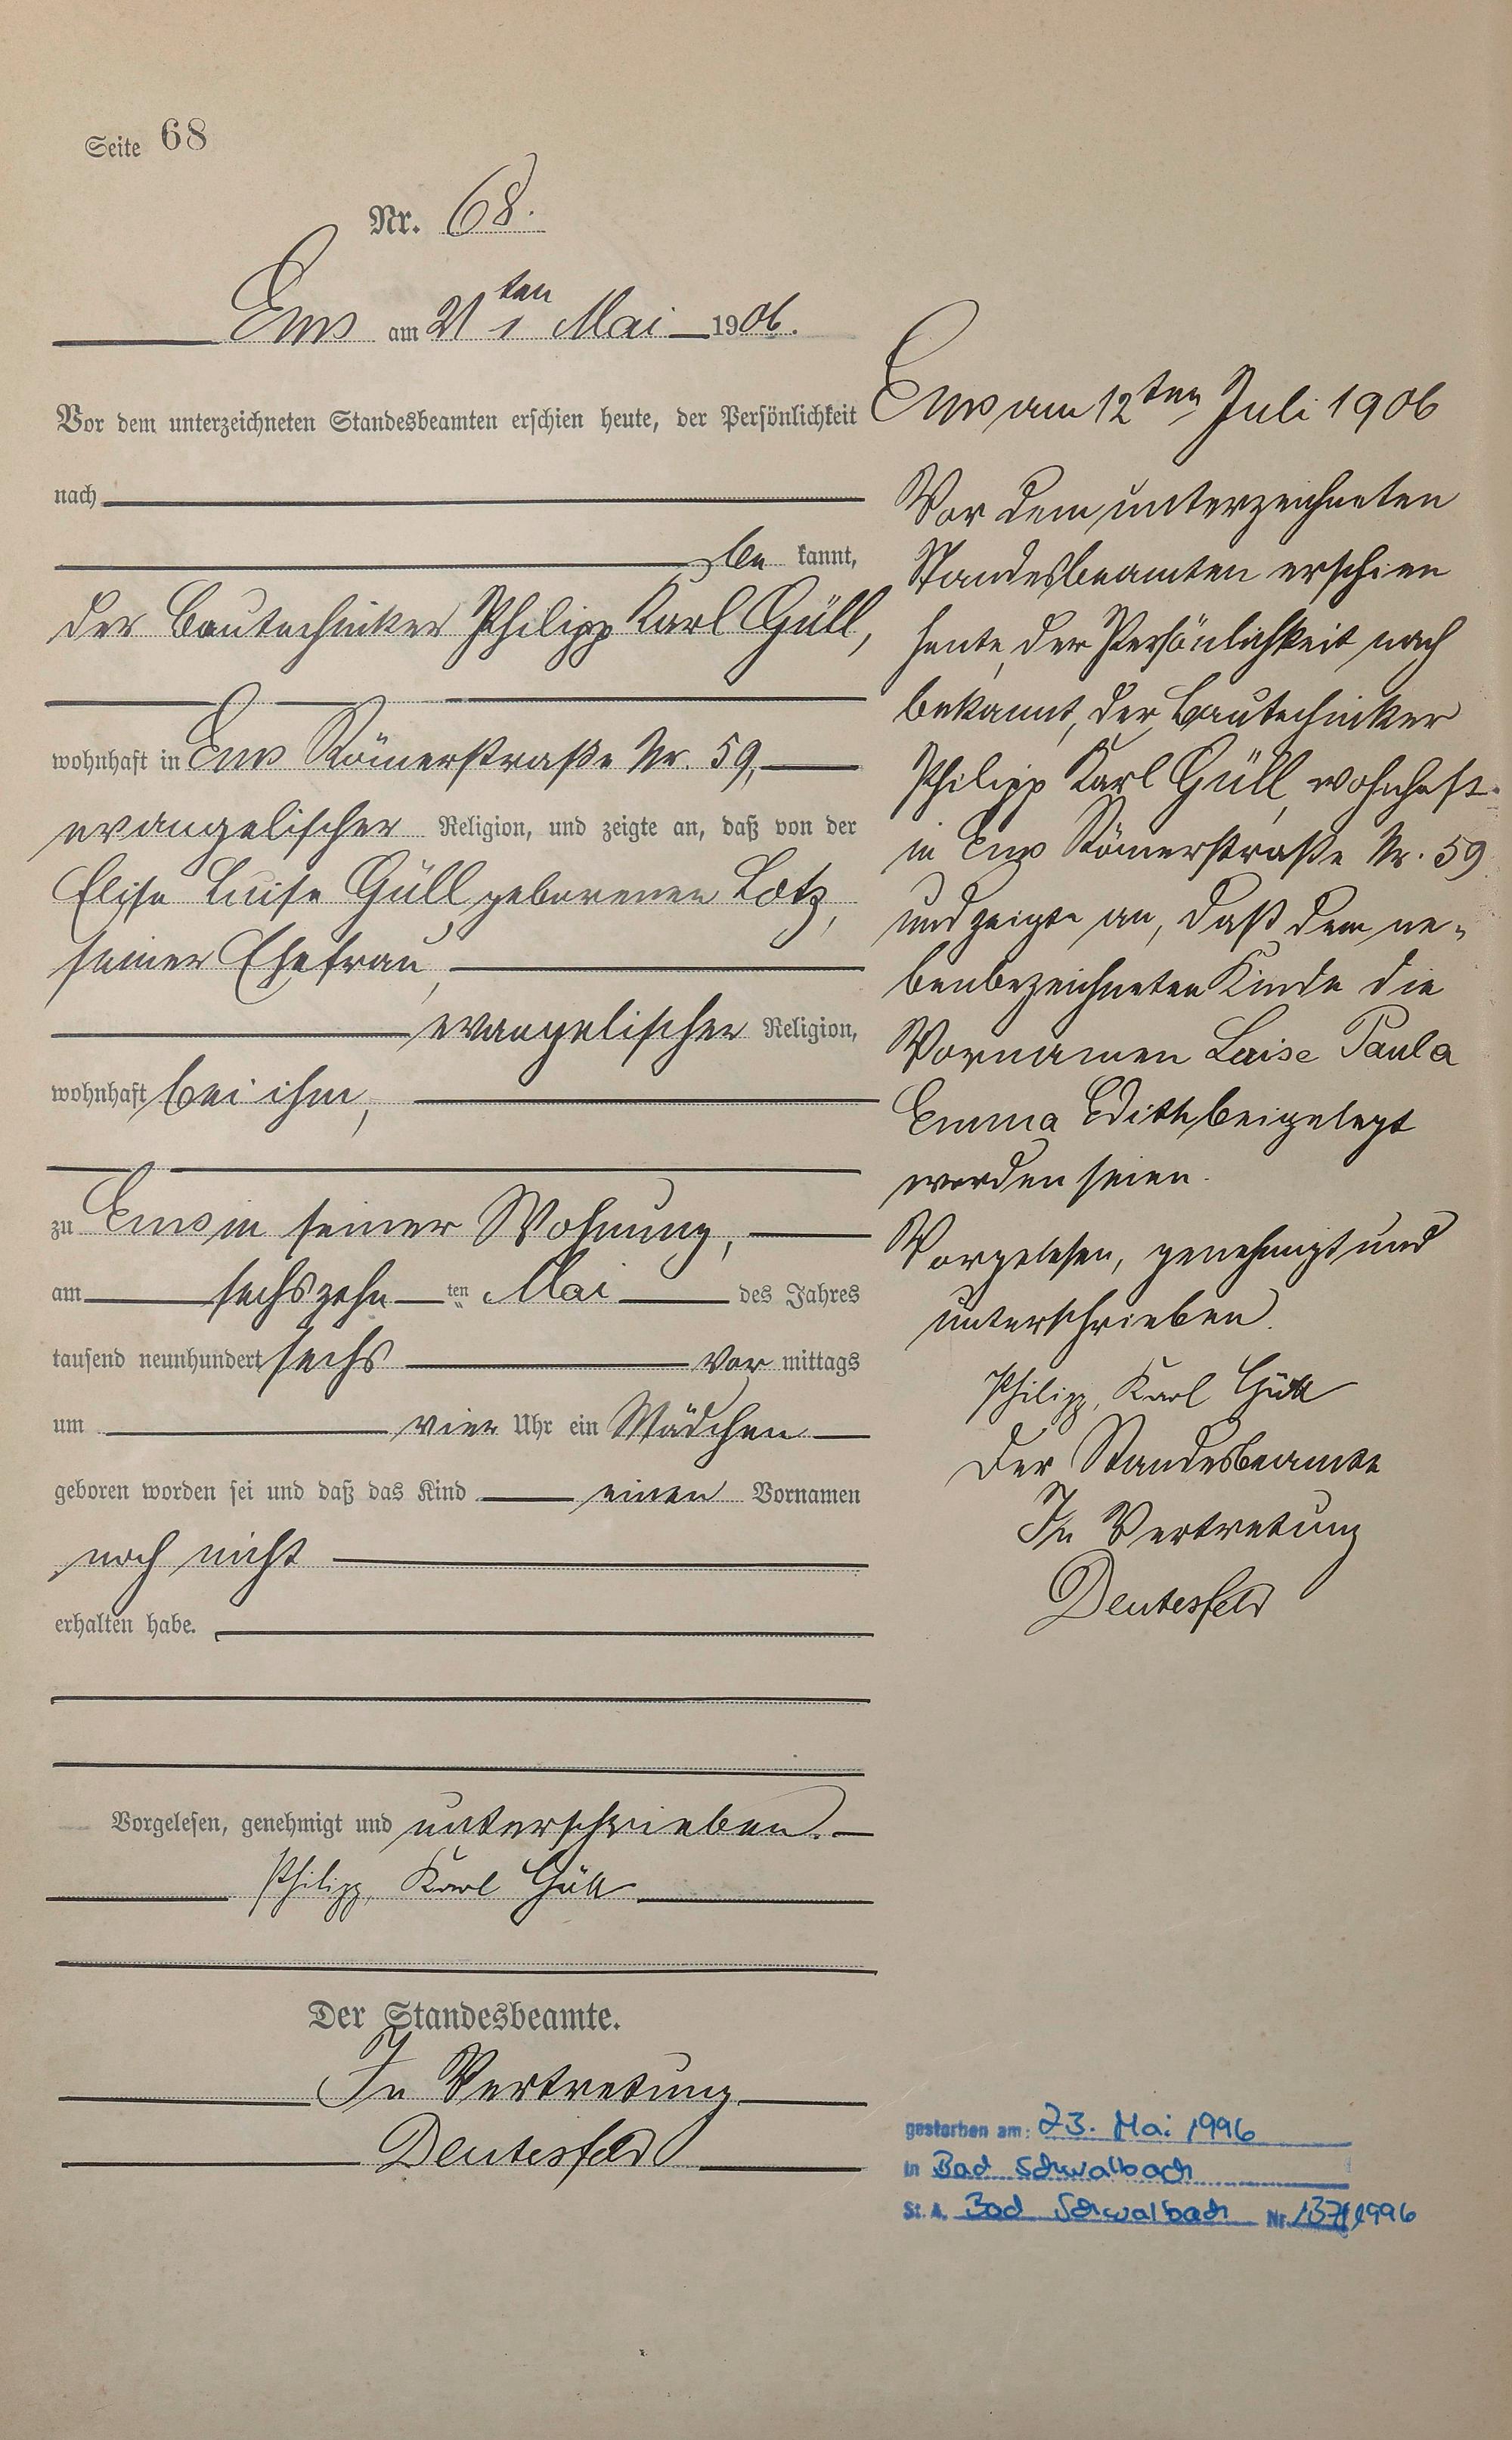 Seite 68
Nr. 68.
Ems am 21ten Mai 1906.
Vor dem unterzeichneten Standesbeamten erschien heute, der Persönlichkeit
nach
be kannt,
der Bautechniker Philipp Karl Güll,
wohnhaft in Ems Römerstraße Nr. 59,
evangelischer Religion, und zeigte an, daß von der
Elise Luise Güll geborenen Lotz,
seiner Ehefrau,
evangelischer Religion,
wohnhaft bei ihm,
zu Ems in seiner Wohnung,
am sechszehn ten Mai des Jahres
tausend neunhundert sechs Vor mittags
um vier Uhr ein Mädchen
geboren worden sei und daß das Kind einen Vornamen
noch nicht
erhalten habe.
Vorgelesen, genehmigt und unterschrieben.
Philipp Karl Güll
Der Standesbeamte.
In Vertretung
Deutesfeld
Ems am 12ten Juli 1906
Vor dem unterzeichneten
Standesbeamten erschien
heute, der Persönlichkeit nach
bekannt, der Bautechniker
Philipp Karl Güll, wohnhaft
in Ems Römerstraße Nr. 59
und zeigte an, daß dem ne-
benbezeichneten Kinde die
Vornamen Luise Paula
Emma Edith beigelegt
worden seien.
Vorgelesen, genehmigt und
unterschrieben.
Philipp Karl Güll
Der Standesbeamte
In Vertretung
Deutesfeld
gestorben am: 23. Mai 1996
in Bad Schwalbach
St. A. Bad Schwalbach Nr. 137/1996